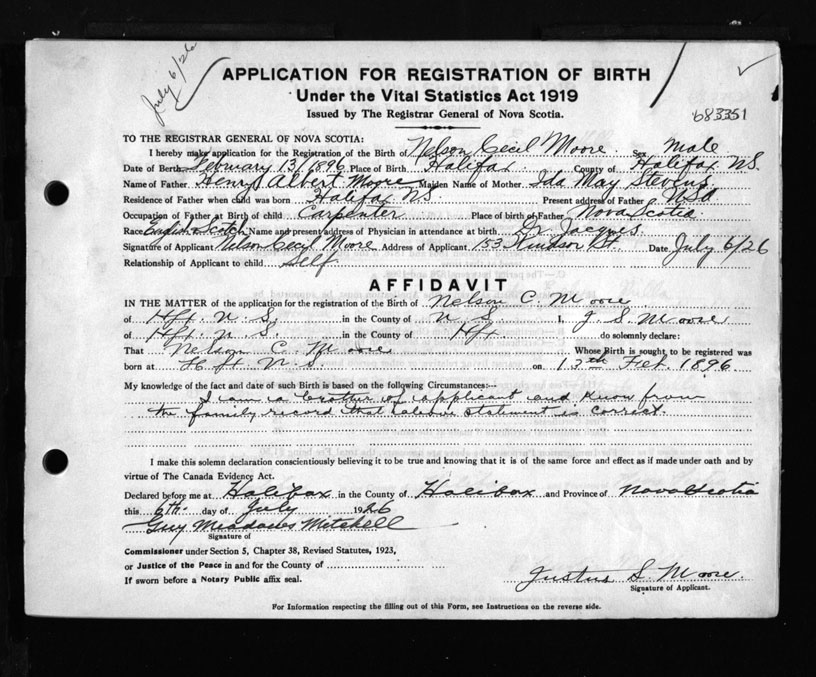 July 6/26
APPLICATION FOR REGISTRATION OF BIRTH
Under the Vital Statistics Act 1919
Issued by The Registrar General of Nova Scotia.
683351
TO THE REGISTRAR GENERAL OF NOVA SCOTIA:
I hereby make application for the Registration of the Birth of Nelson Cecil Moore Sex Male
Date of Birth February 13/1896 Place of Birth Halifax County of Halifax N.S.
Name of Father Henry Albert Moore Maiden Name of Mother Ida May Stevens
Residence of Father when child was born Halifax N.S. Present address of Father
Occupation of Father at Birth of child Carpenter Place of birth of Father Nova Scotia
Race English & Scotch Name and present address of Physician in attendance at birth Dr Jacques
Signature of Applicant Nelson Cecil Moore Address of Applicant 153 Windsor St. Date July 6/26
Relationship of Applicant to child Self
AFFIDAVIT
IN THE MATTER of the application for the registration of the Birth of Nelson C. Moore
of Hfx. N. S. in the County of N S. I, J. S. Moore
of Hfx. N. S. in the County of Hfx do solemnly declare:
That Nelson C. Moore Whose Birth is sought to be registered was
born at Hfx N.S. on 13th Feb. 1896
My knowledge of the fact and date of such Birth is based on the following Circumstances:—
I am a brother of applicant and know from
the family record that above statement is correct.
I make this solemn declaration conscientiously believing it to be true and knowing that it is of the same force and effect as if made under oath and by
virtue of The Canada Evidence Act.
Declared before me at Halifax in the County of Halifax and Province of Nova Scotia
this 6th day of July 1926
Guy Meadows Mitchell
Signature of
Commissioner under Section 5, Chapter 38, Revised Statutes, 1923,
or Justice of the Peace in and for the County of
If sworn before a Notary Public affix seal.
Justus S. Moore
Signature of Applicant.
For Information respecting the filling out of this Form, see Instructions on the reverse side.